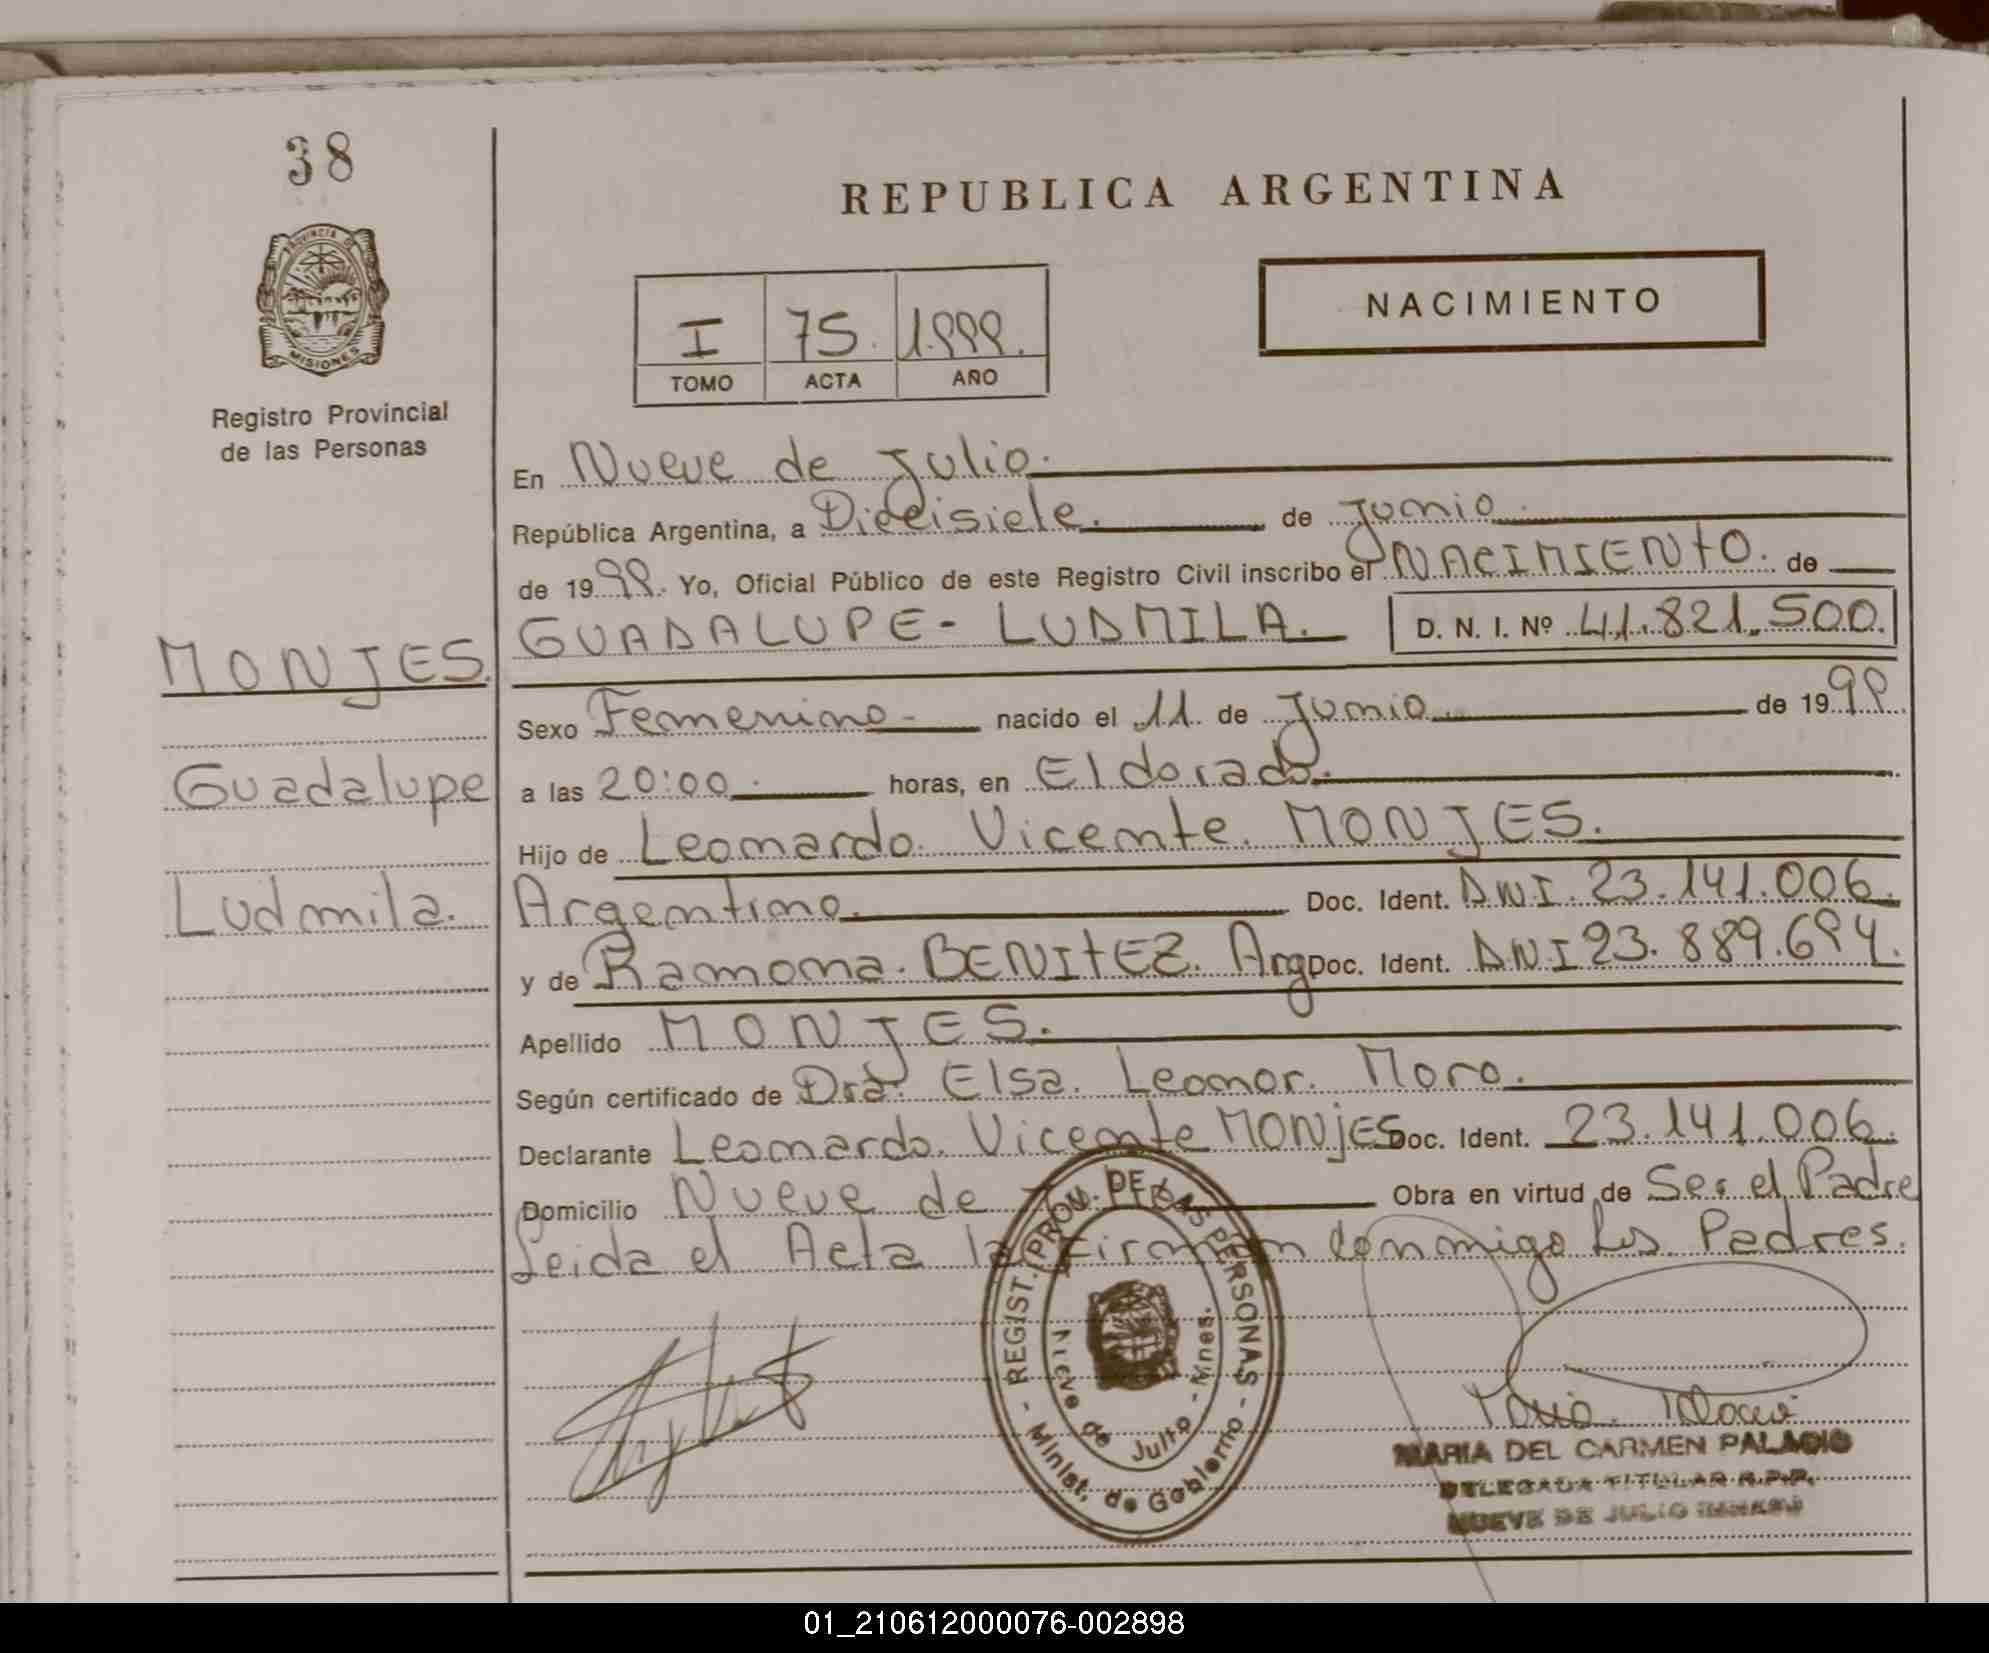 38
PROVINCIA DE
MISIONES
Registro Provincial
de las Personas
MONJES.
Guadalupe
Ludmila.
REPUBLICA ARGENTINA
NACIMIENTO
I 75. 1.999.
TOMO ACTA AÑO
En Nueve de Julio.
República Argentina, a Diecisiete. de Junio.
de 1999. Yo, Oficial Público de este Registro Civil inscribo el NACIMIENTO. de
GUADALUPE - LUDMILA. D. N. I. Nº 41.821.500.
Sexo Femenino - nacido el 11. de Junio de 1999.
a las 20:00. horas, en Eldorado.
Hijo de Leonardo. Vicente. MONJES.
Argentino. Doc. Ident. DNI. 23.141.006.
y de Ramona. BENITEZ. Arg Doc. Ident. DNI 23.889.694.
Apellido MONJES.
Según certificado de Dra. Elsa. Leonor. Moro.
Declarante Leonardo. Vicente MONJES Doc. Ident. 23.141.006.
Domicilio Nueve de Julio Obra en virtud de Ser el Padre
Leida el Acta la Firman conmigo los Padres.
REGIST. PROV. DE LAS PERSONAS - Minist. de Gobierno -
Nueve de Julio - Mnes.
MARIA DEL CARMEN PALADIO
DELEGADA TITULAR R.P.P.
NUEVE DE JULIO
01_210612000076-002898